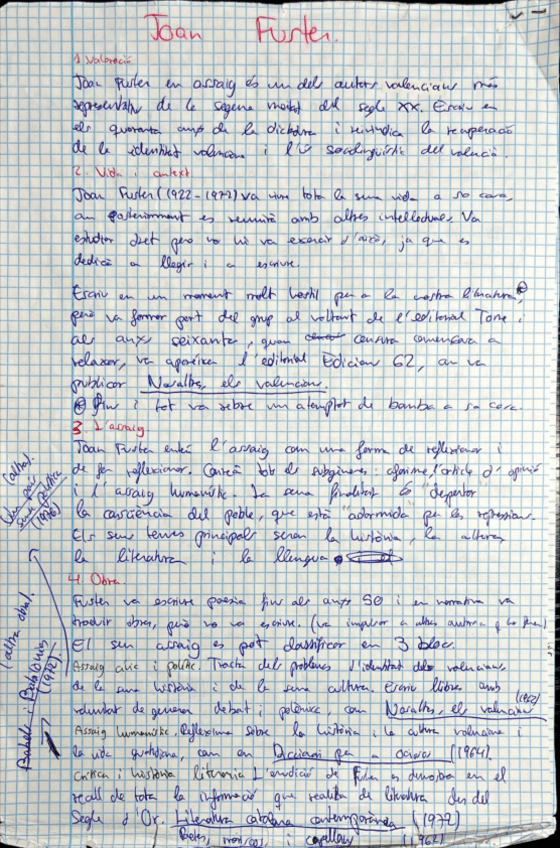 Joan Fuster.
1. Valoració
Joan Fuster en assaig és un dels autors valencians més
representatiu de la segona meitat del segle XX. Escriu en
els quaranta anys de la dictadura i reivindica la recuperació
de la identitat valenciana i l'ús sociolingüístic del valencià.
2. Vida i context
Joan Fuster (1922-1977) va viure tota la seua vida a sa casa,
on posteriorment es reuniria amb altres intel·lectuals. Va
estudiar dret però no hi va exercir d'això, ja que es
dedicà a llegir i a escriure.
Escriu en un moment molt hostil per a la nostra literatura,
però va formar part del grup al voltant de l'editorial Torre i
als anys seixanta, quan censura començava a
relaxar, va aparèixer l'editorial Edicions 62, on va
publicar Nosaltres, els valencians.
Fins i tot va rebre un atemptat de bomba a sa casa.
3. L'assaig
Joan Fuster entén l'assaig com una forma de reflexionar i
de fer reflexionar. Conreà tots els subgèneres: aforisme, l'article d'opinió
i l'assaig humanístic. La seua finalitat és "despertar
la consciència del poble, que està "adormida" per les repressions.
Els seus temes principals seran la història, la cultura,
la literatura i la llengua
4. Obra
Fuster va escriure poesia fins als anys 50 i en narrativa va
traduir obres, però no va escriure. (va impulsar a altres autors a
El seu assaig es pot classificar en 3 bloc.
Assaig cívic i polític. Tracta del problemes d'identitat dels valencians,
de la seua història i de la seua cultura. Escriu llibres amb
voluntat de generar debat i polèmica, com Nosaltres, els valencians (1962)
Assaig humanístic. Reflexiona sobre la història, la cultura valenciana i
la vida quotidiana, com en Diccionari per a ociosos (1964).
Crítica i història literària L'erudició de Fuster es demostra en el
recull de tota la informació que realitza de literatura des del
Segle d'Or. Literatura catalana contemporània (1972)
Poetes, moriscos i capellans (1962)
(altra).
(1976)
(altra obra).
Babels i Babilònies
(1972).